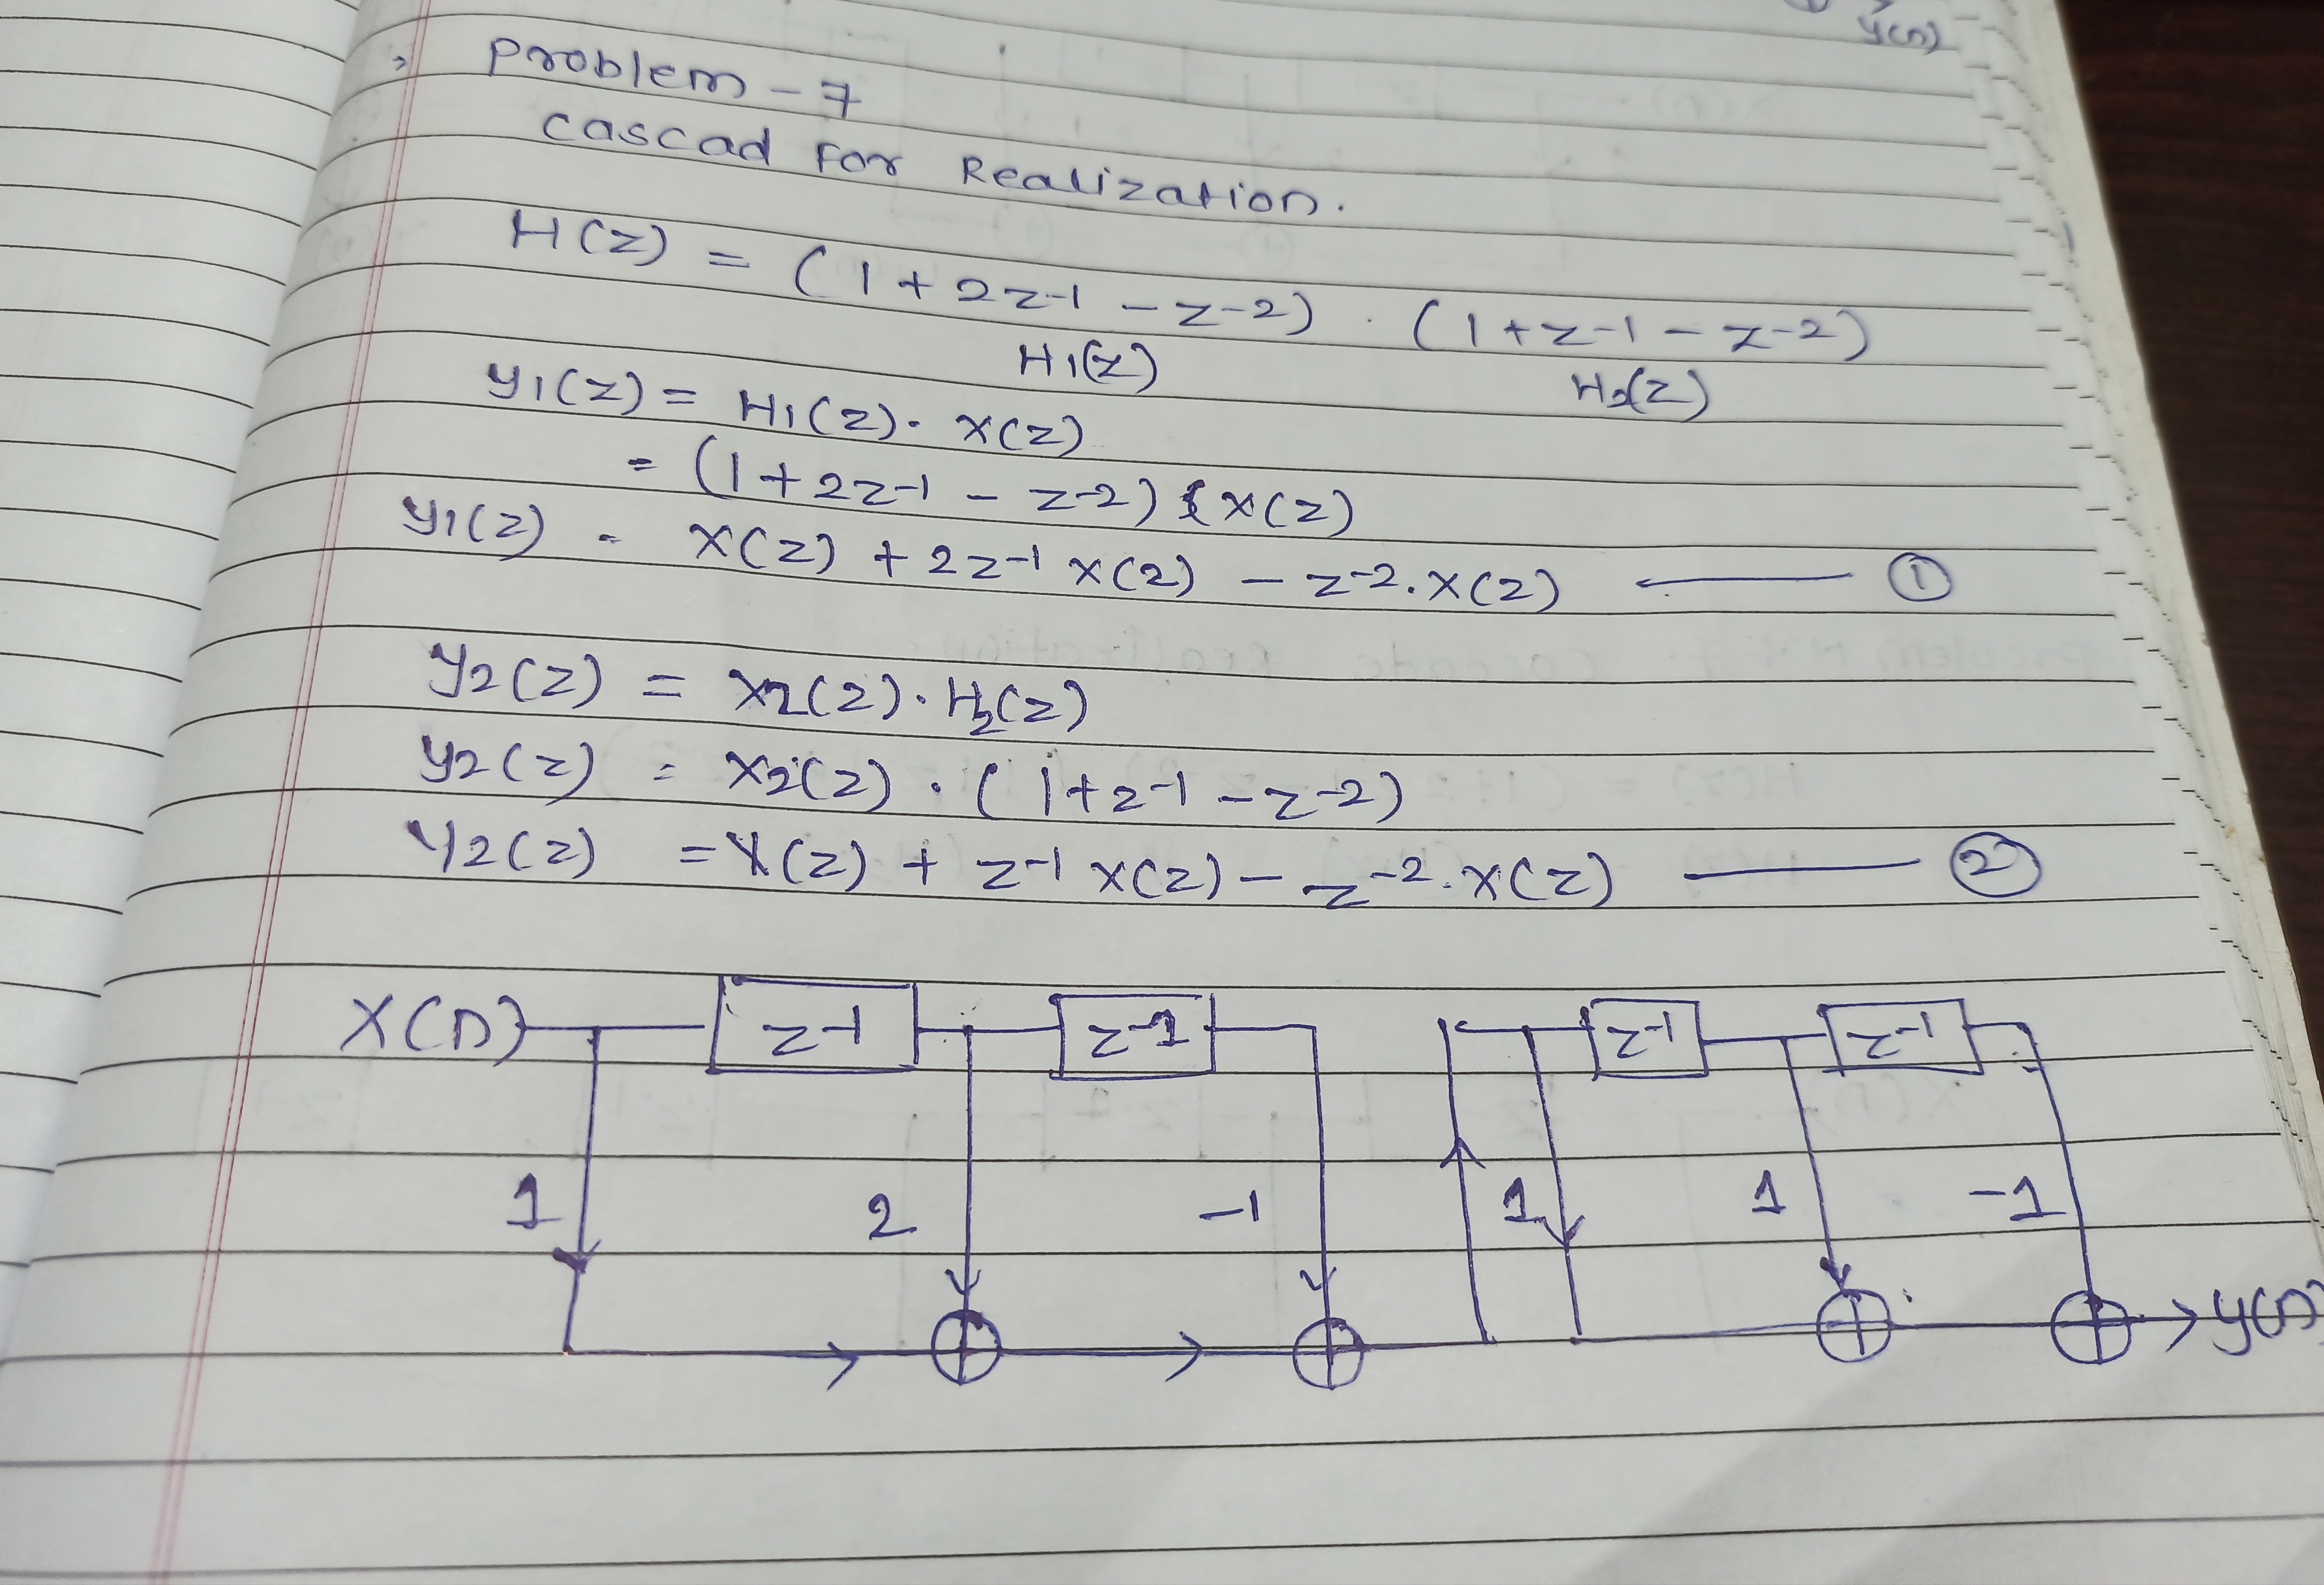 y(n)
Problem - 7
Cascad For Realization.
H(z) = (1+2z-1 - z-2) . (1+z-1 - z-2)
H1(z) H2(z)
y1(z) = H1(z). X(z)
= (1+2z-1 - z-2) X(z)
y1(z) = X(z) + 2z-1 X(z) - z-2.X(z) —— ①
y2(z) = X2(z).H2(z)
y2(z) = X2(z) . (1+z-1 - z-2)
Y2(z) = X(z) + z-1 X(z) - z-2.X(z) —— ②
X(n) z-1 z-1 z-1 z-1
1 2 -1 1 1 -1
y(n)